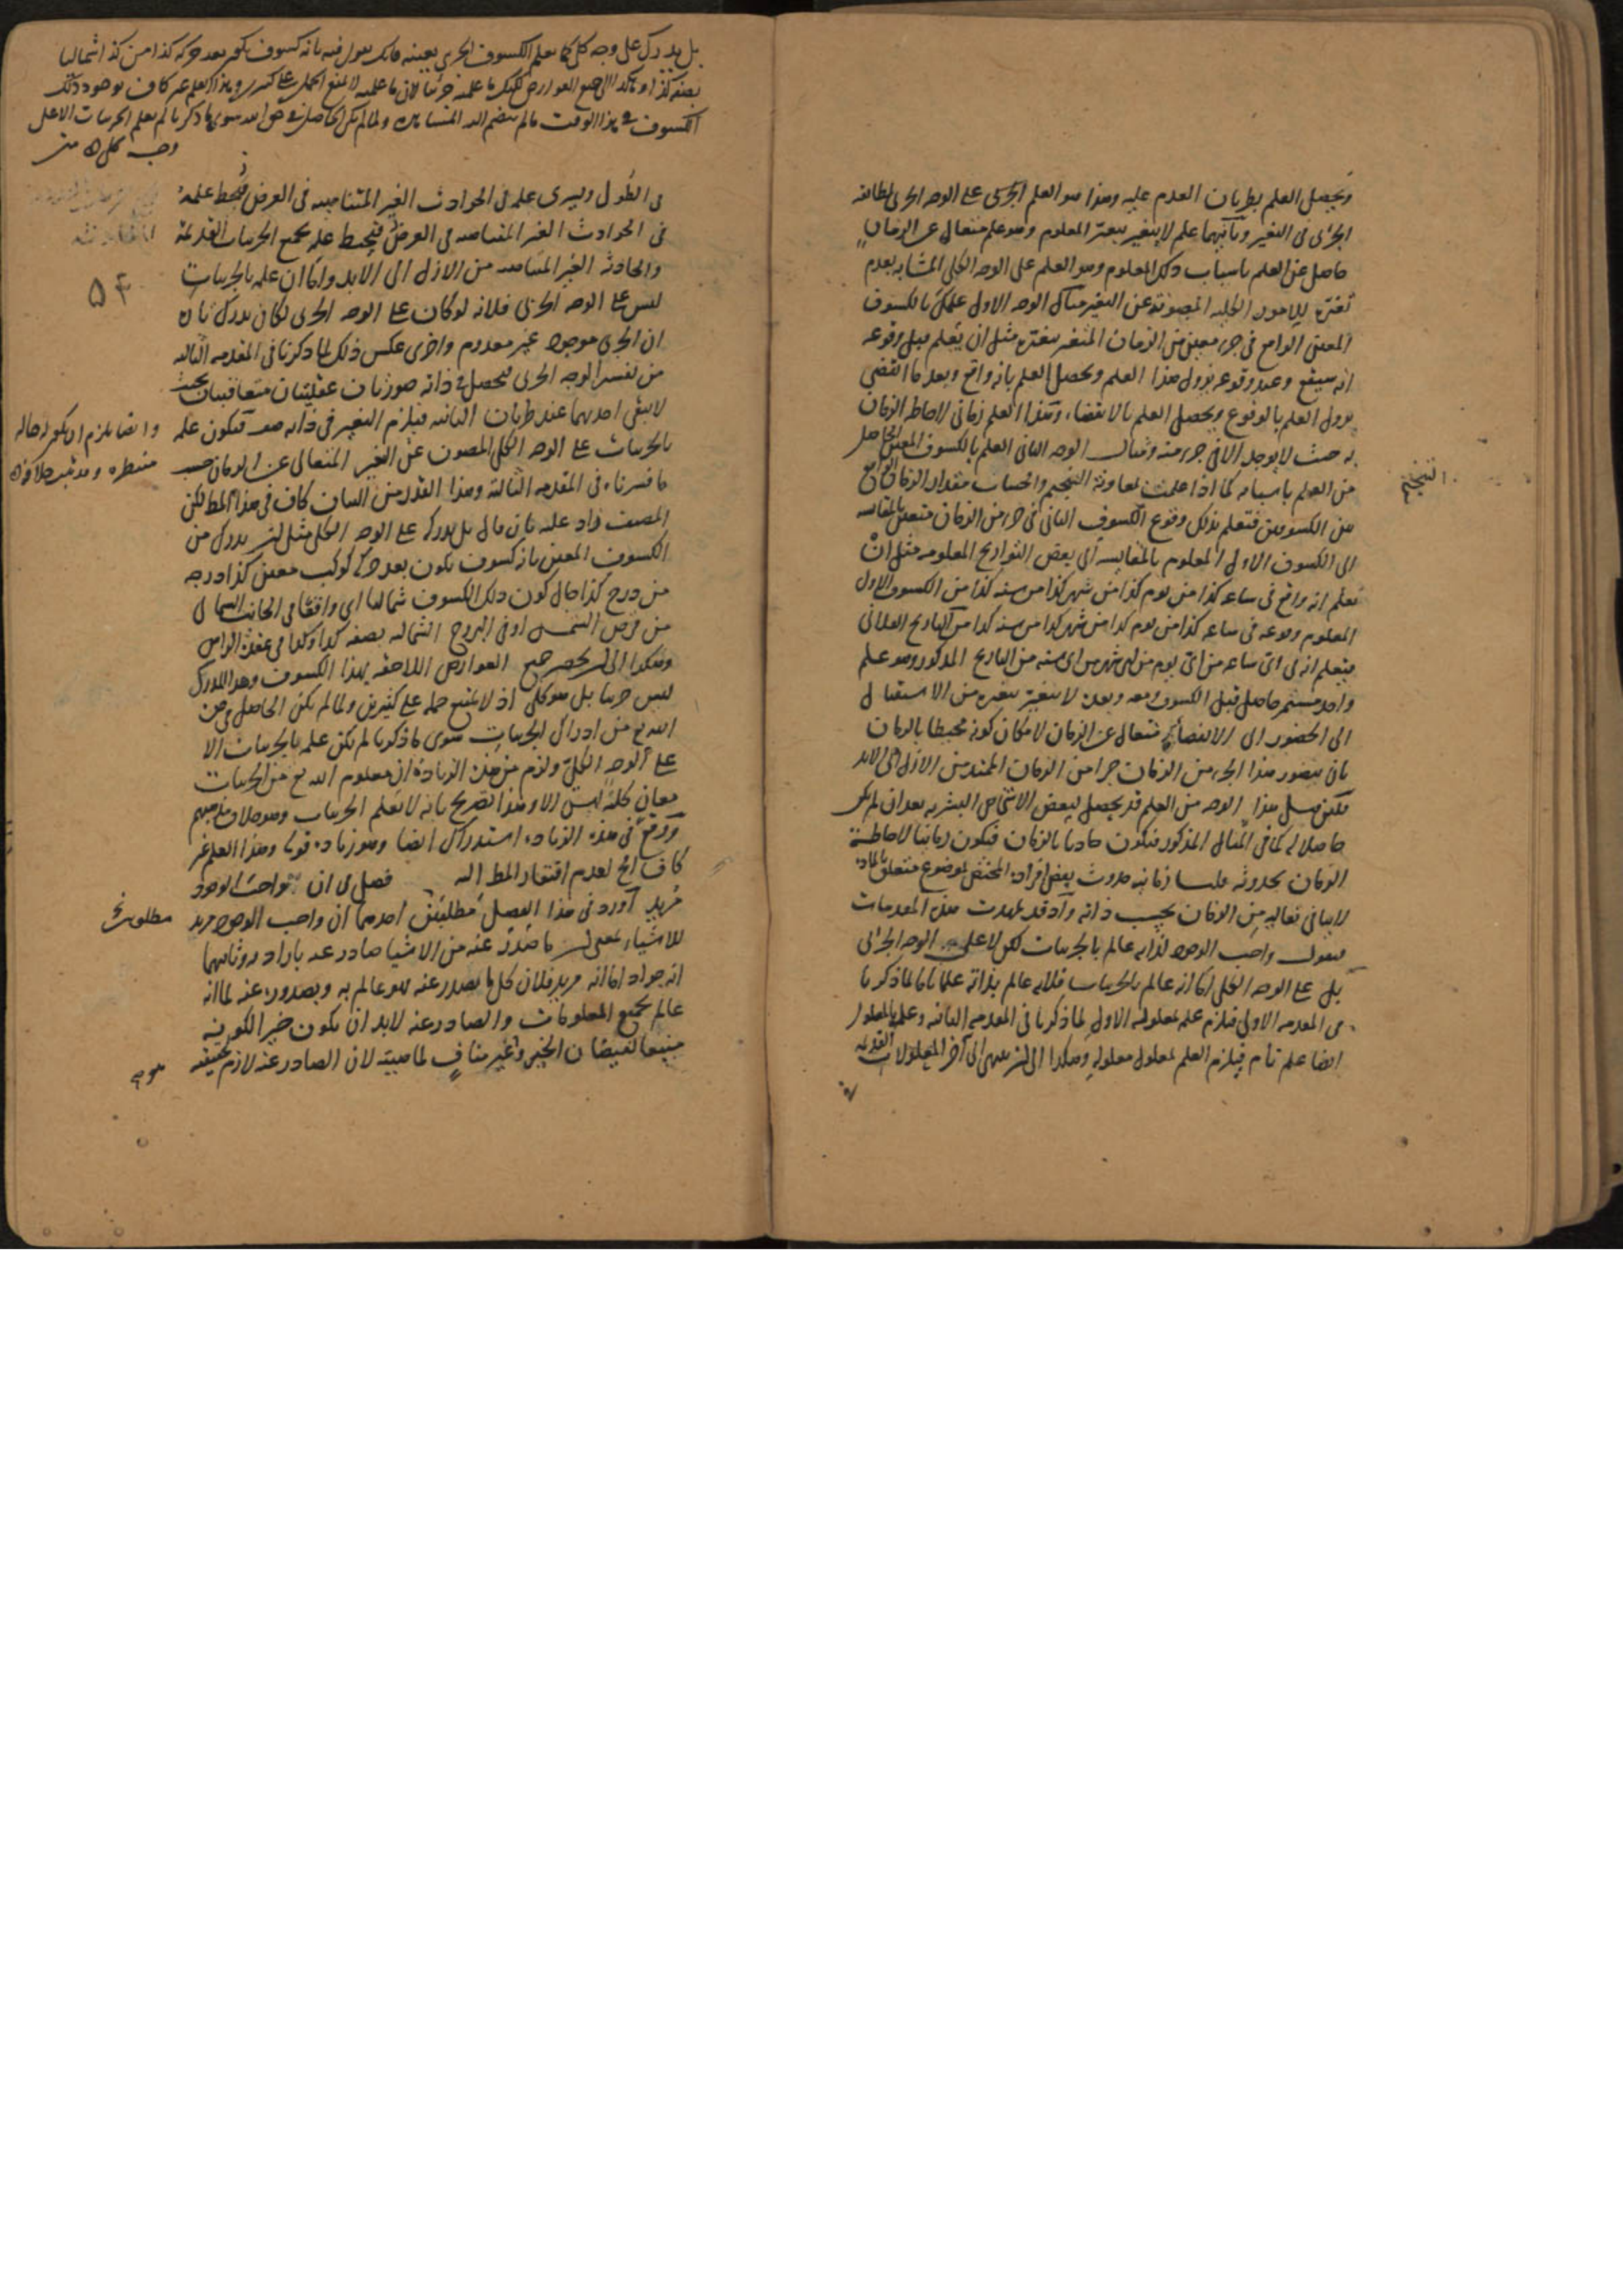 ويحصل العلم بطريان العدم عليه وهذا هو العلم الجزئى على الوجه الجزئى لمطابقة
الجزئى فى التغير وثانيهما علم لا يتغير بتغير المعلوم وهو علم متعال عن الزمان
حاصل عن العلم باسباب ذلك المعلوم وهو العلم على الوجه الكلى المشابه بعدم
تغيره للامور الكلية المصونة عن التغير مثال الوجه الاول علمك بالكسوف
المعين الواقع فى جزء معين من الزمان المتغير بتغيره مثل ان يعلم قبل وقوعه
انه سيقع وعند وقوعه يزول هذا العلم ويحصل العلم بانه واقع وبعد ما انقضى
يزول العلم بالوقوع ويحصل العلم بالانقضاء وهذا العلم زمانى لاحاطة الزمان
به حيث لا يوجد الا فى جزء منه ومثال الوجه الثانى العلم بالكسوف المعين الحاصل
من العلم باسبابه كما اذا علمت بمعاونة التنجيم والحساب مقدار الزمان الواقع
بين الكسوفين فتعلم بذلك وقوع الكسوف الثانى فى جزء من الزمان متعين بالمقايسة
الى الكسوف الاول المعلوم بالمقايسة الى بعض التواريخ المعلومة مثل ان
تعلم انه واقع فى ساعة كذا من يوم كذا من شهر كذا من سنة كذا من الكسوف الاول
المعلوم وقوعه فى ساعة كذا من يوم كذا من شهر كذا من سنة كذا من التاريخ الفلانى
فيعلم انه فى اى ساعة من اى يوم من اى شهر من اى سنة من التاريخ المذكور وهو علم
واحد مستمر حاصل قبل الكسوف ومعه وبعده لا يتغير بتغيره من الاستقبال
الى الحضور الى الانقضاء متعال عن الزمان لامكان كونه محيطا بالزمان
بان يتصور هذا الجزء من الزمان جزءا من الزمان الممتد من الازل الى الابد
لكن مثل هذا الوجه من العلم قد يحصل لبعض الاشخاص البشرية بعد ان لم يكن
حاصلا له كما فى المثال المذكور فيكون حادثا بالزمان فيكون زمانيا لاحاطة
الزمان بحدوثه قلنا زمانية حدوث بعض افراده المختص بموضوع متعلق بالمادة
لا ينافى تعاليه من الزمان بحسب ذاته واذ قد تمهدت هذه المقدمات
فنقول واجب الوجود لذاته عالم بالجزئيات لكن لا على الوجه الجزئى
بل على الوجه الكلى اما انه عالم بالجزئيات فلانه عالم بذاته علما تاما لما ذكرنا
فى المقدمة الاولى فيلزم علمه بمعلوله الاول لما ذكرنا فى المقدمة الثانية وعلمه بالمعلول
ايضا علم تام فيلزم العلم بمعلول معلوله وهكذا الى ان ينتهى الى آخر المعلولات القديمة
التنجيم
بل يدرك على وجه كلى كما يعلم الكسوف الجزئى بعينه فانك تقول فيه بانه كسوف يكون بعد حركة كذا من كذا شماليا
بصفة كذا وهكذا الى جميع العوارض لكنك ما علمته جزئيا لان ما علمته لا يمنع الحمل على كثيرين وهذا العلم غير كاف لوجود ذلك
الكسوف فى هذا الوقت ما لم ينضم اليه المشاهدة ولما لم يكن الحاصل فى حق الله سوى ما ذكرنا لم يعلم الجزئيات الا على
وجه كلى متن
فى الطول ويسرى علمه فى الحوادث الغير المتناهية فى العرض فيحيط علمه
فى الحوادث الغير المتناهية فى العرض فيحيط علمه بجميع الجزئيات القديمة
والحادثة الغير المتناهية من الازل الى الابد واما ان علمه بالجزئيات
ليس على الوجه الجزئى فلانه لو كان على الوجه الجزئى لكان يدرك تارة
ان الجزئى موجود غير معدوم واخرى عكس ذلك لما ذكرنا فى المقدمة الثالثة
من تفسير الوجه الجزئى فيحصل فى ذاته صورتان عقليتان متعاقبتان بحيث
لا يبقى احديهما عند طريان الثانية فيلزم التغير فى ذاته فيكون علمه
بالجزئيات على الوجه الكلى المصون عن التغير المتعالى عن الزمان حسب
ما فسرناه فى المقدمة الثالثة وهذا القدر من البيان كاف فى هذا المط لكن
المصنف زاد عليه بان قال بل يدرك على الوجه الكلى مثل ان يدرك من
الكسوف المعين بانه كسوف يكون بعد حركة كوكب معين كذا درجة
من درج كذا حال كون ذلك الكسوف شماليا اى واقعا فى الجانب الشمالى
من قرص الشمس او فى البروج الشمالية بصفة كذا وكذا فى عقدة الراس
وهكذا الى ان يحصر جميع العوارض اللاحقة لهذا الكسوف وهذا المدرك
ليس جزئيا بل هو كلى اذ لا يمنع حمله على كثيرين ولما لم يكن الحاصل فى حق
الله تع من ادراك الجزئيات سوى ما ذكرنا لم يكن علمه بالجزئيات الا
على الوجه الكلى ولزم من هذه الزيادة ان معلوم الله تع من الجزئيات
معان كلية ليس الا وهذا تصريح بانه لا يعلم الجزئيات وهو خلاف مذهبهم
ووقع فى هذه الزيادة استدراك ايضا وهو زيادة قوله وهذا العلم غير
كاف الخ لعدم افتقار المط اليه فصل فى ان واجب الوجود
مريد اورد فى هذا الفصل مطلبين احدهما ان واجب الوجود مريد
للاشياء بمعنى ان ما صدر عنه من الاشيا صادر عنه بارادة وثانيهما
انه جواد اما انه مريد فلان كل ما يصدر عنه فهو عالم به وبصدوره عنه لما انه
عالم بجميع المعلومات والصادر عنه لا بد ان يكون خيرا لكونه
منبعا لفيضان الخير وغير مناف لماهيته لان الصادر عنه لازم لحقيقته
۵۴
وايضا يلزم ان يكون له حالة
منتظرة وقد ثبت خلافه
مطلوبين